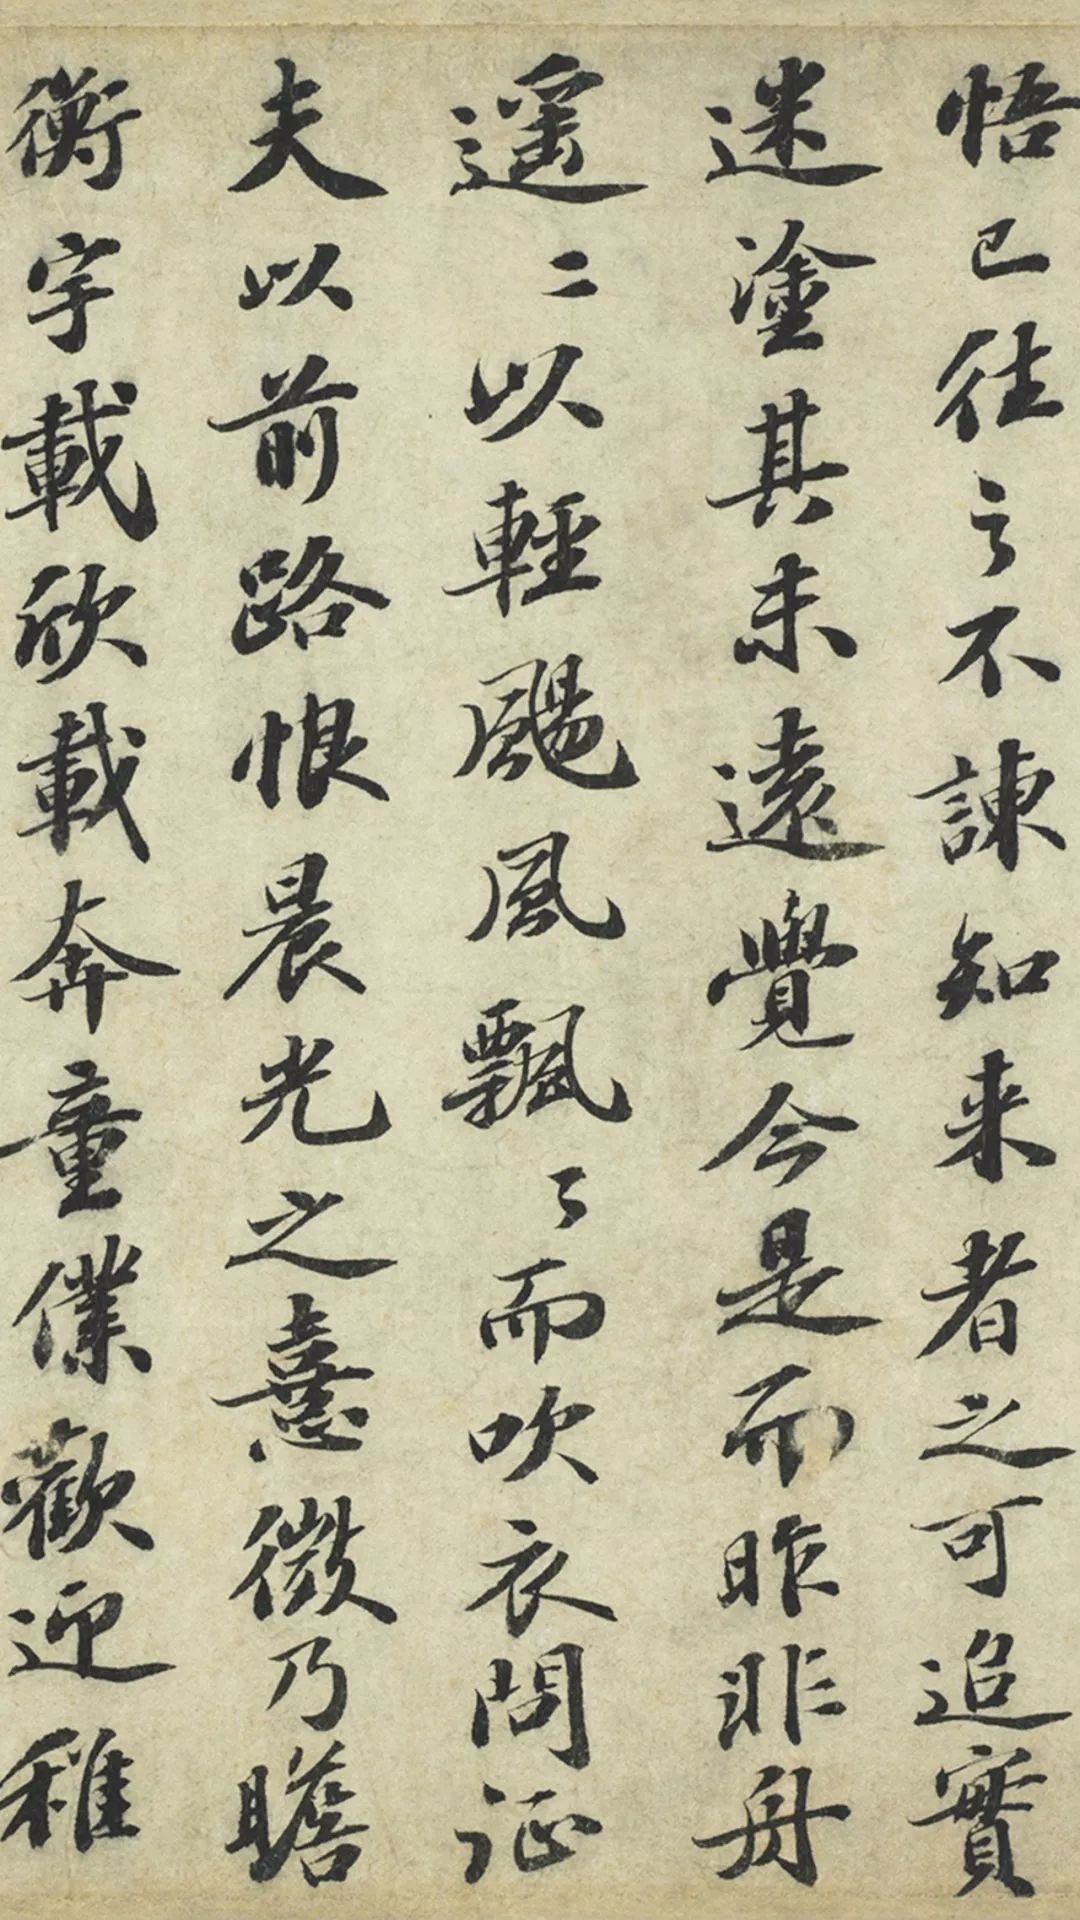 悟已往之不諫知来者之可追實
迷塗其未遠覺今是而昨非舟
遥二以輕颺風飄々而吹衣問征
夫以前路恨晨光之熹微乃瞻
衡宇載欣載奔童僕歡迎稚